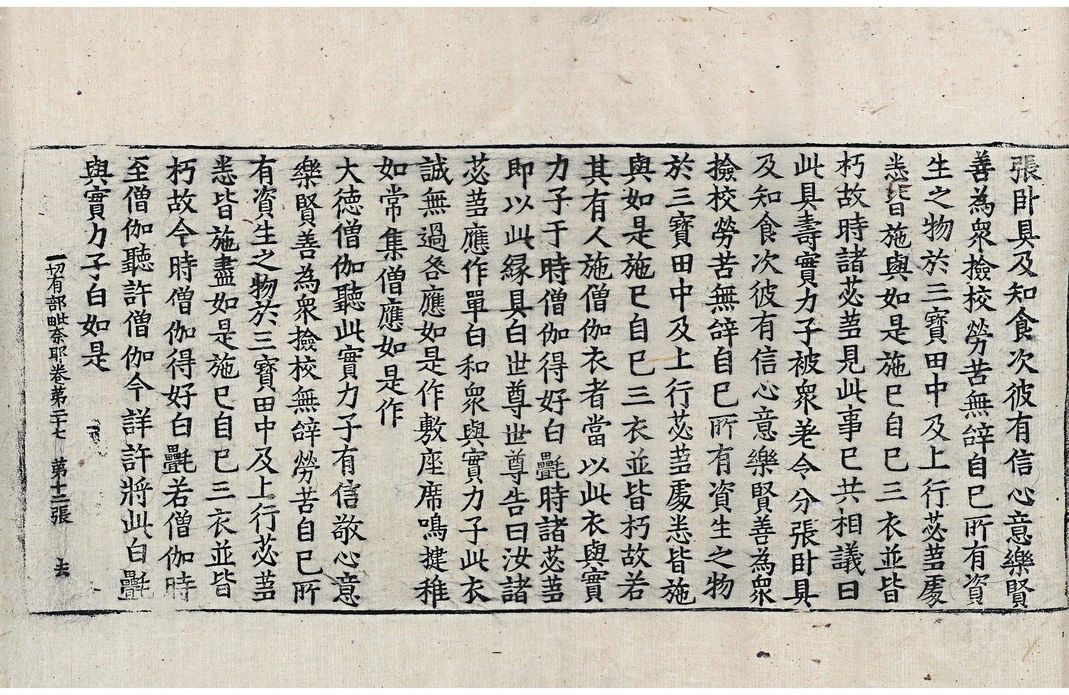 張卧具及知食次彼有信心意樂賢
善為衆撿校勞苦無辝自巳所有資
生之物於三寶田中及上行苾蒭處
悉皆施與如是施巳自巳三衣並皆
朽故時諸苾蒭見此事巳共相議曰
此具壽實力子被衆差令分張卧具
及知食次彼有信心意樂賢善為衆
撿校勞苦無辝自巳所有資生之物
於三寶田中及上行苾蒭處悉皆施
與如是施巳自巳三衣並皆朽故若
其有人施僧伽衣者當以此衣與實
力子于時僧伽得好白㲲時諸苾蒭
即以此縁具白世尊世尊告曰汝諸
苾蒭應作單白和衆與實力子此衣
誠無過咎應如是作敷座席鳴揵稚
如常集僧應如是作
大德僧伽聽此實力子有信敬心意
樂賢善為衆撿校無辝勞苦自巳所
有資生之物於三寶田中及上行苾蒭
悉皆施盡如是施巳自巳三衣並皆
朽故今時僧伽得好白㲲若僧伽時
至僧伽聽許僧伽今詳許將此白㲲
與實力子白如是
一切有部毗奈耶卷第二十七 第十二張 去